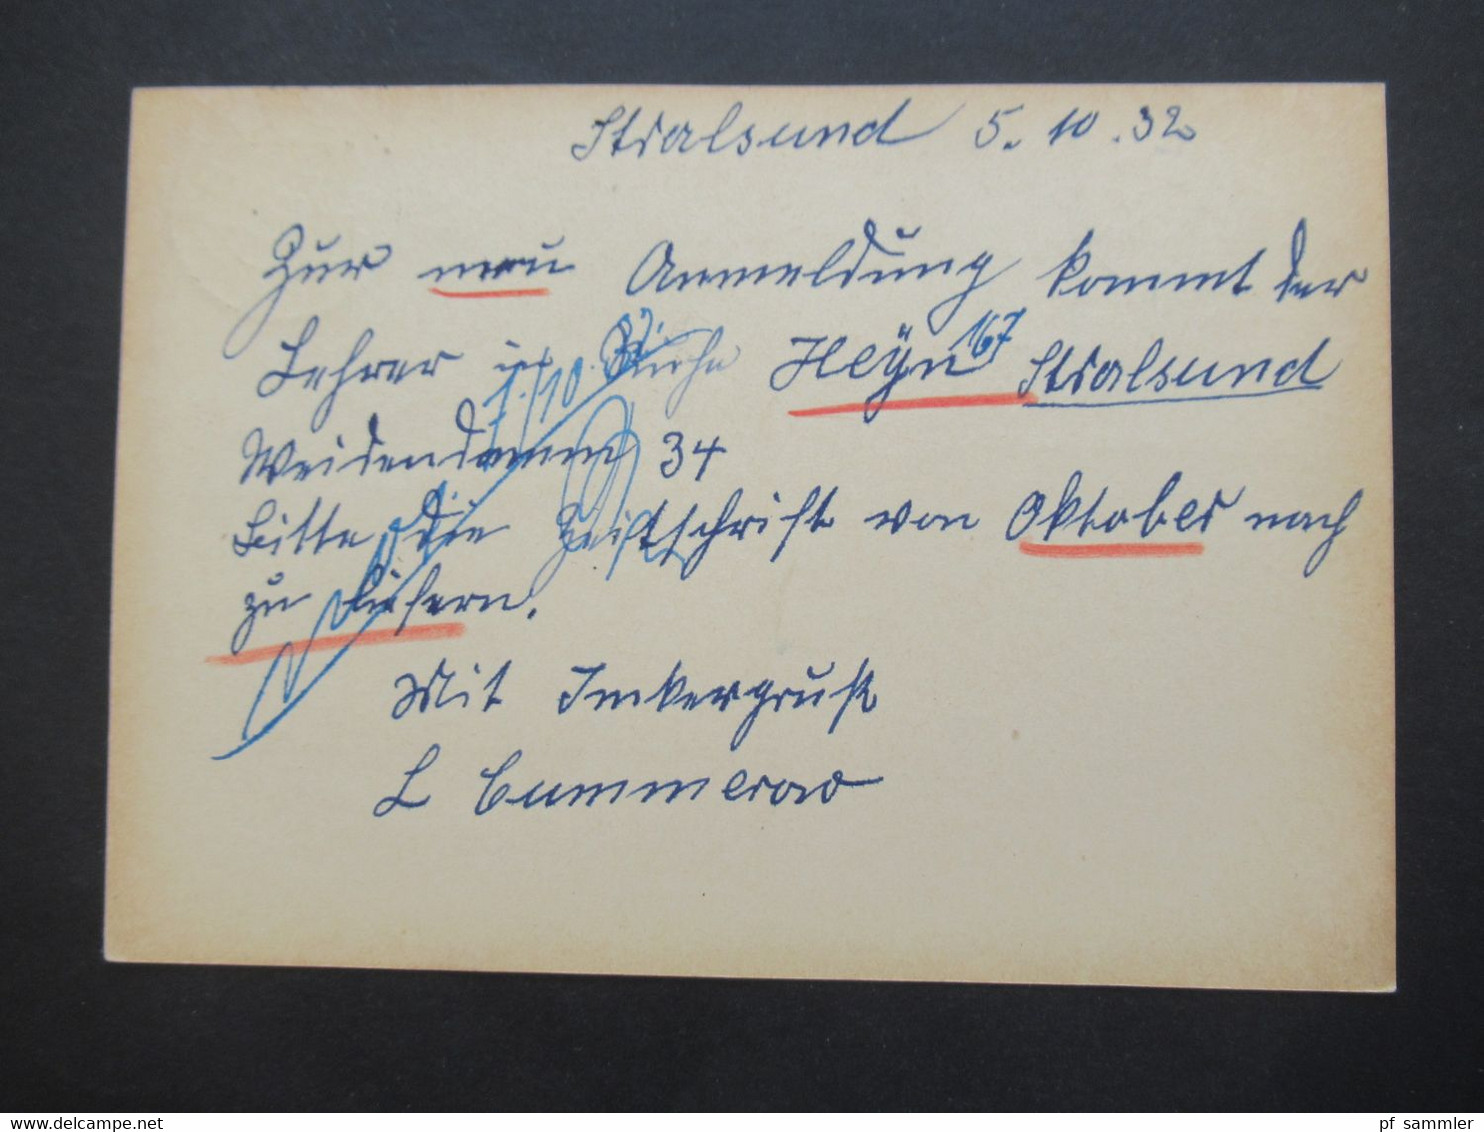 Stralsund 5. 10. 32
Zur neu Anmeldung kommt der
Lehrer Heÿn 167 Stralsund
Weidendamm 34
Bitte die Zeitschrift von Oktober nach
zu liefern.
Mit Imkergruß
L Cummerow
pf_sammler